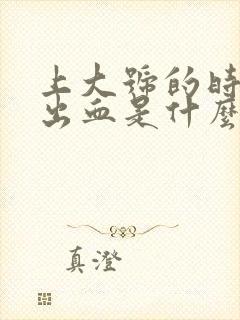 上大號的時
出血是什麼
真澄